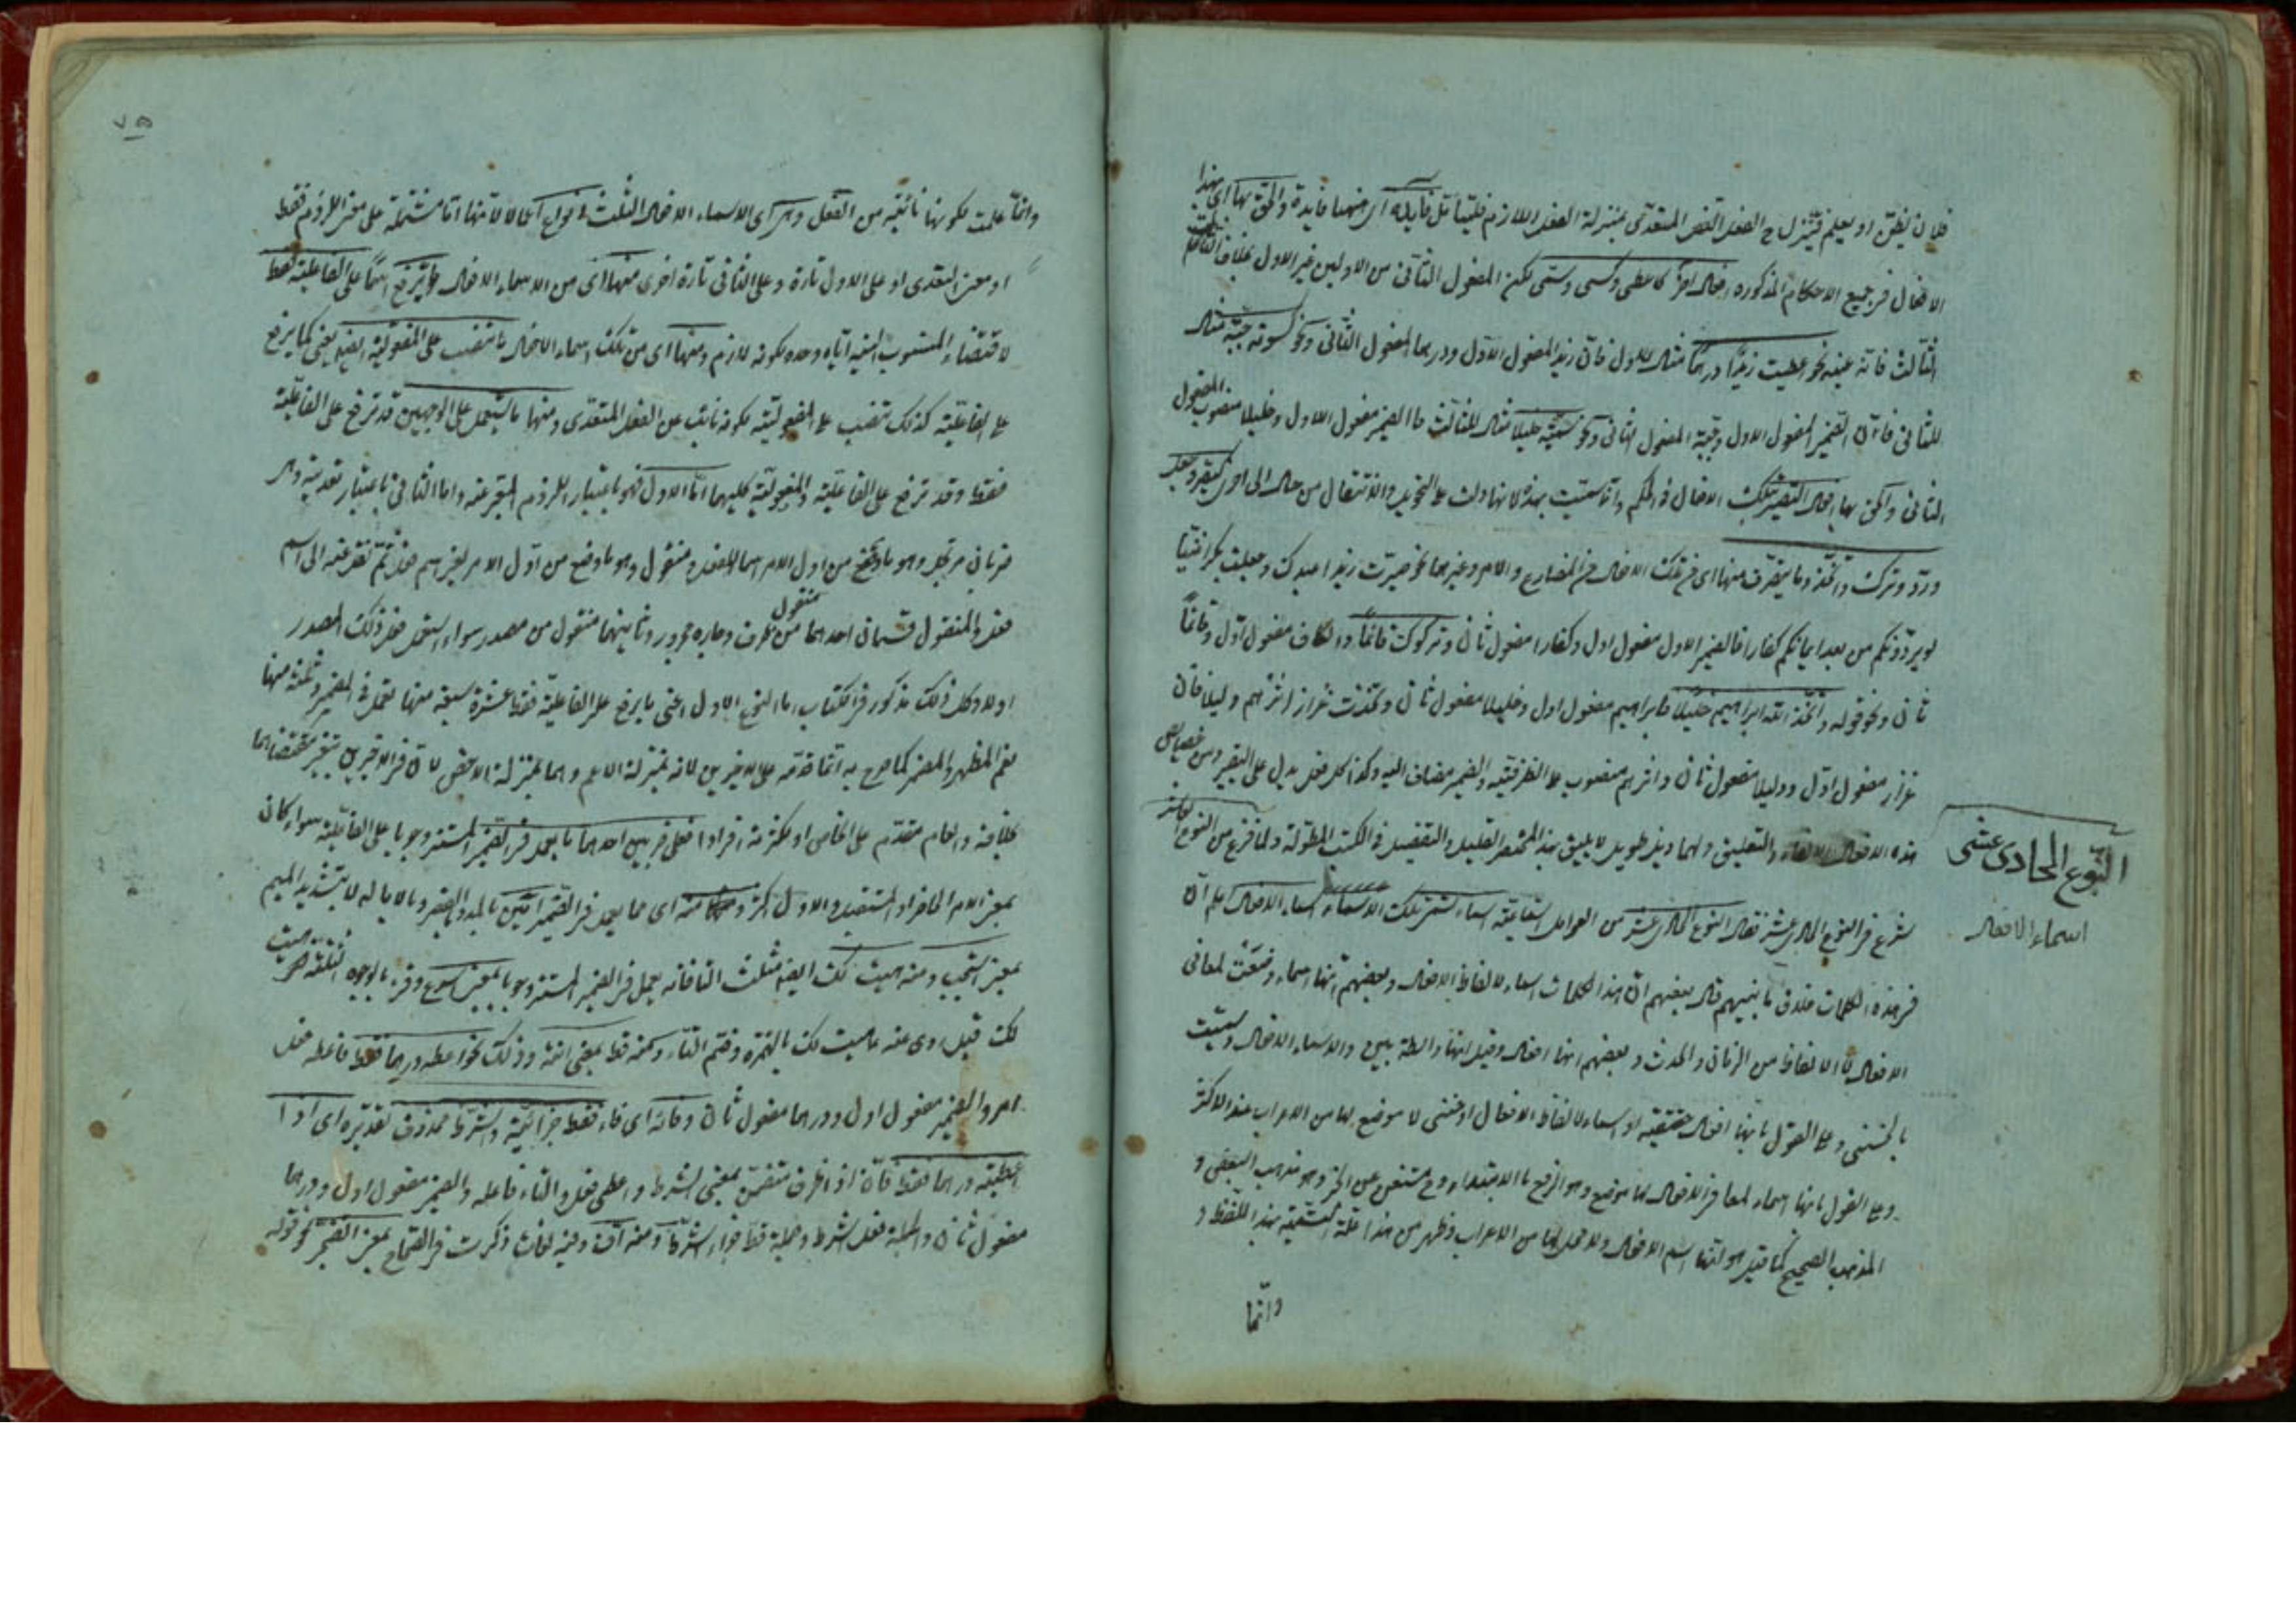 فلان يظن او يعلم فينزل ح الفعل المتعدى بمنزلة الفعل اللازم فليتأمل فايدة والحق بها اى بهذا
الافعال فى جميع الاحكام المذكوره افعال اخر كاعطى وكسى وسمى لكن المفعول الثانى من الاولين غير الاول بخلاف
الثالث فانه عينه نحو اعطيت زيدا درهما مثال للاول فان زيدا المفعول الاول ودرهما المفعول الثانى ونحو كسوته جبة مثال
للثانى فان الضمير المفعول الاول وجبة المفعول الثانى ونحو سميته خليلا مثال للثالث فالضمير مفعول الاول وخليلا منصوب المفعول
الثانى والحق بها افعال التصيير بتلك الافعال فى الحكم وانما سميت بهذه لانها دلت على التحويل والانتقال من حال الى اخرى كصير وجعل
ورد وترك واتخذ وما يتصرف منها اى من تلك الافعال من المضارع والامر وغيرهما نحو صيرت زيدا عبدك وجعلت بكرا فتيا
لو يردونكم من بعد ايمانكم كفارا فالضمير الاول مفعول اول وكفارا مفعول ثان وتركوك قائما والكاف مفعول اول وقائما
ثان ونحو قوله واتخذ الله ابراهيم خليلا فابراهيم مفعول اول وخليلا مفعول ثان وتخذت غراز اثرهم دليلا فان
غراز مفعول اول ودليلا مفعول ثان واثرهم منصوب على الظرفية والضمير مضاف اليه وكذا كل فعل يدل على التصيير ومن خصايص
هذه الافعال الالغاء والتعليق ولهما ذيل طويل لا يليق بهذا المختصر القليل والتفصيل فى الكتب المطولة ولما فرغ من النوع العاشر
النوع الحادى عشر
شرع فى النوع الحادى عشر فقال النوع الحادى عشر من العوامل السماعية اسماء تسمى تلك الاسماء اسماء الافعال اعلم ان
اسماء الافعال
فى هذه الكلمات خلاف ما بينهم قال بعضهم ان هذا الكلمات اسماء لالفاظ الافعال وبعضهم انها اسماء وضعت لمعانى
الافعال الالفاظ من الزمان والحدث وبعضهم انها افعال وقيل انها رابطة بين الاسماء الافعال وسميت
وعلى القول بانها افعال حقيقية او اسماء لالفاظ الافعال لا موضع لها من الاعراب عند الاكثر
وعلى القول بانها اسماء لمعانى الافعال لها موضع وهو الرفع بالابتداء وح مستغن عن الخبر وهو مذهب البعض و
المذهب الصحيح كما قيل هو انها اسم الافعال ولا محل لها من الاعراب وظهر من هذا علة التسمية بهذا اللفظ و
وانما
وانما علمت لكونها نائبة من الفعل وهى اى الاسماء الافعال الثلث انواع لانها اما مشتملة على معنى اللازم فقط
او معنى التعدى او على الاول تارة وعلى الثانى تارة اخرى منها اى من الاسماء الافعال ما يرفع اسما على الفاعلية فقط
لاقتضاء المنسوب اليه اياه وحده لكونه لازم ومنها اى من تلك اسماء الافعال ما تنصب على المفعولية ايضا يعنى كما يرفع
على الفاعلية كذلك تنصب على المفعولية لكونه نائب عن الفعل المتعدى ومنها ما يشتمل على الوجهين قد ترفع على الفاعلية
فقط وقد ترفع على الفاعلية والمفعولية كليهما اما الاول فهو باعتبار اللزوم وعنه واما الثانى باعتبار تعديته وهى
ضربان مرتجل وهو ما وضع من اول الامر اسما للفعل ومنقول وهو ما وضع من اول الامر لغير اسم فعل ثم نقل عنه الى اسم
فعل والمنقول قسمان احدهما منقول من ظرف وجار ومجرور وثانيهما منقول من مصدر سواء استعمل فعل ذلك المصدر
اولا وكل ذلك مذكور فى الكتاب اما النوع الاول اعنى ما يرفع على الفاعلية فقط عشرة سبعة منها تعمل فى المضمر وثلثة منها
تعم المظهر والمضمر كما صرح به انما قدمه على الاخيرين لانه بمنزلة الاعم وهما بمنزلة الاخص
بخلافه والعام مقدم على الخاص او لكثرة افراده فعلى ضربين احدهما ما يعمل فى الضمير المستتر وجوبا على الفاعلية سواء كان
بمعنى الامر الحاضر او المستقبل والاول اكثر ومنه اى مما يعمل فى الضمير آمين بالمد والقصر وبالامالة لا بتشديد الميم
بمعنى استجب ومنه هيت لك ايضا مثلث التا فانه يعمل فى الضمير المستتر وجوبا بمعنى اسرع وقرئ بالوجوه الثلثة هيت
لك قيل روى عنه هئت لك بالهمزة وضم التاء ومنه قط بمعنى انته وذلك نحو اعطه درهما فقط فاعطه فعل
امر والضمير مفعول اول ودرهما مفعول ثان وفائه اى فاء فقط جزائية والشرط محذوف تقديره اى اذا
اعطيته درهما فقط فان اذا ظرف متضمن بمعنى الشرط واعطى فعل والتاء فاعله والضمير مفعول اول ودرهما
مفعول ثان والجملة فعل شرط وجملة قط جزاء الشرط ومنه اف وفيه لغات ذكرت فى الصحاح بمعنى اتضجر نحو قوله